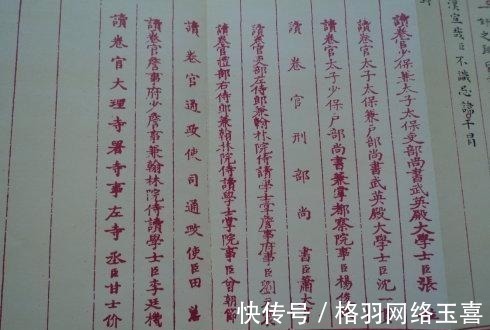 漢宣哉臣不識忌諱干冒
讀卷官少保兼太子太保吏部尚書武英殿大學士臣張
讀卷官太子太保兼戶部尚書武英殿大學士臣沈一
讀卷官太子少保戶部尚書兼掌都察院事臣楊俊
讀卷官刑部尚書臣蕭大
讀卷官吏部左侍郎兼翰林院侍讀學士掌詹事府事臣劉
讀卷官禮部右侍郎兼翰林院侍讀學士掌院事臣曾朝節
讀卷官通政使司通政使臣田
讀卷官詹事府少詹事兼翰林院侍讀學士臣李廷機
讀卷官大理寺署寺事左寺丞臣甘士价
快传号/格羽网络玉喜